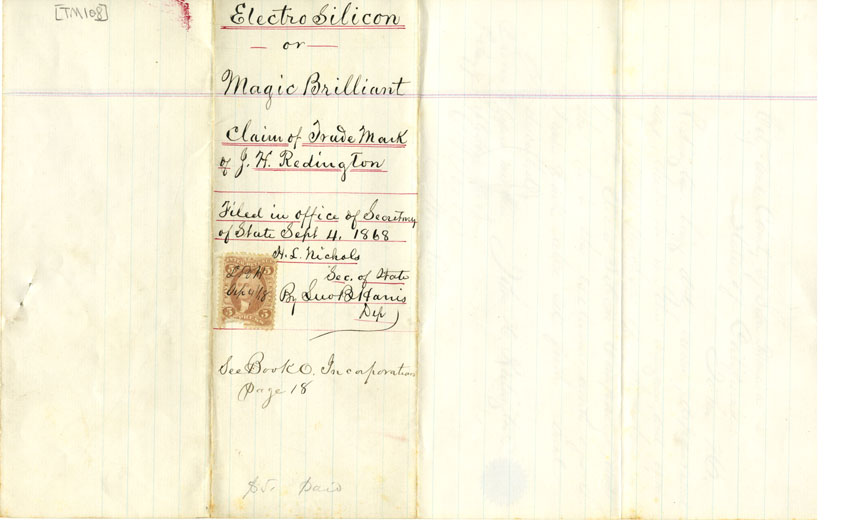 [TM108]
Electro Silicon
— or —
Magic Brilliant
Claim of Trade Mark
of J. H. Redington
Filed in office of Secretary
of State Sept 4, 1868
H. L. Nichols
Sec. of State
By Geo B Harris
Dep
5 5
5 5
See Book O. Incorporation
page 18
$5. Paid